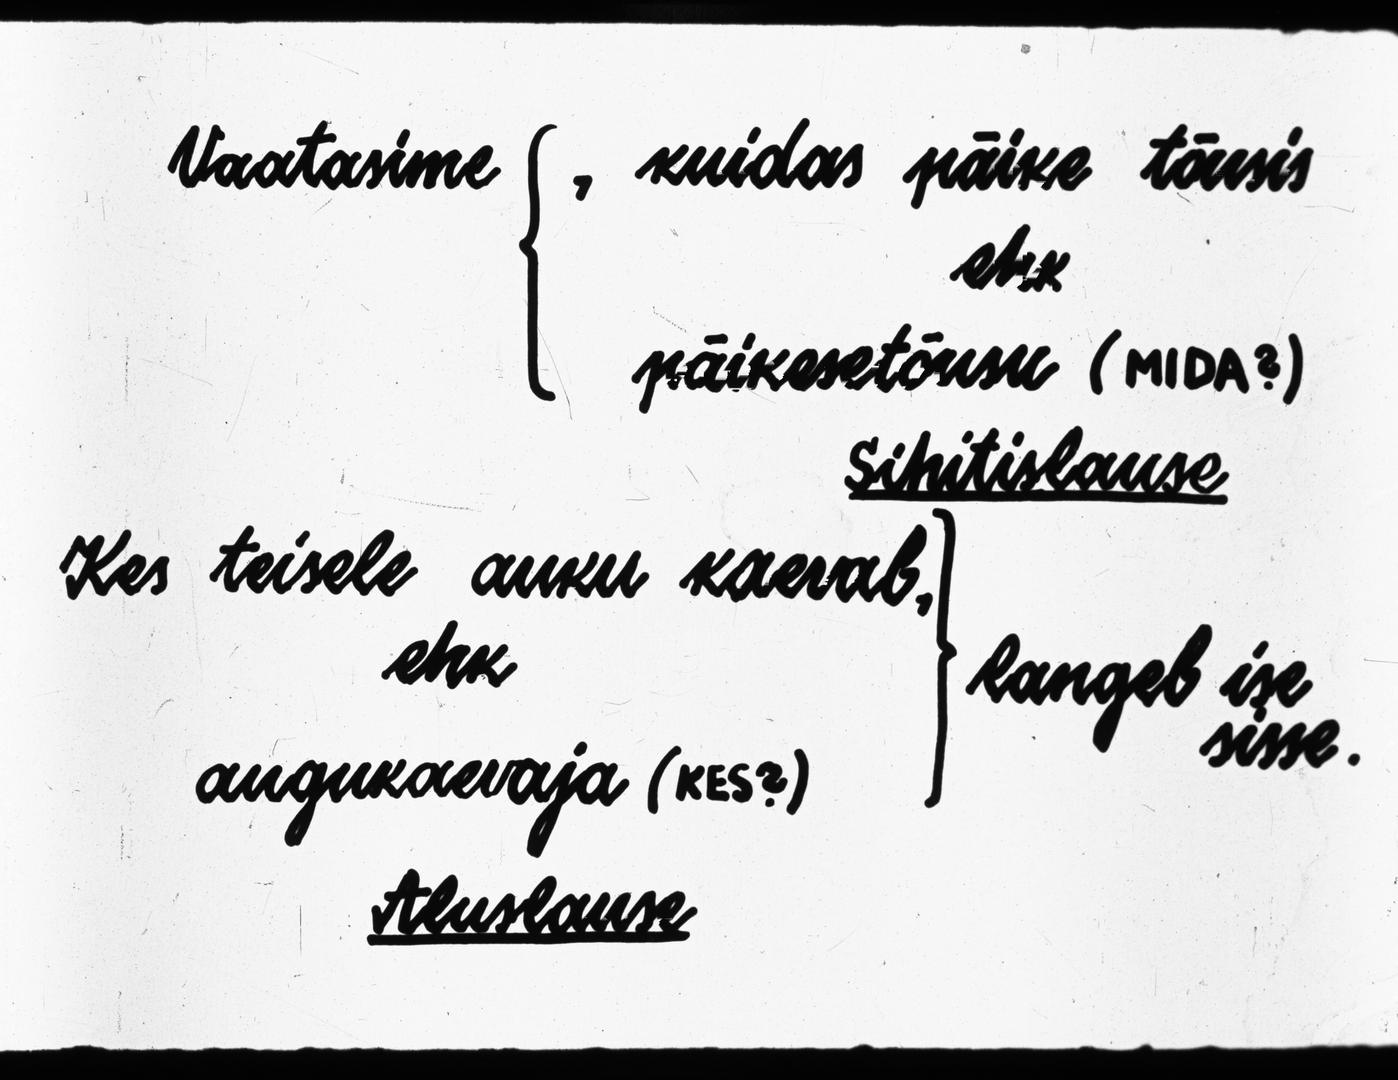 Vaatasime { , kuidas päike tõusis
ehk
päikesetõusu (MIDA?)
Sihitislause
Kes teisele auku kaevab,
ehk
} langeb ise
sisse.
augukaevaja (KES?)
Aluslause